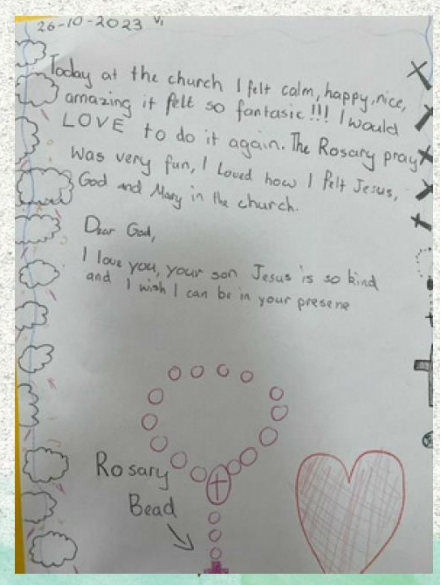 26-10-2023 Vi
Today at the church I felt calm, happy, nice,
amazing it felt so fantasic!!! I would
LOVE to do it again. The Rosary pray
was very fun, I Loved how I felt Jesus,
God and Mary in the church.
Dear God,
I love you, your son Jesus is so kind
and I wish I can be in your presene
Rosary
Bead